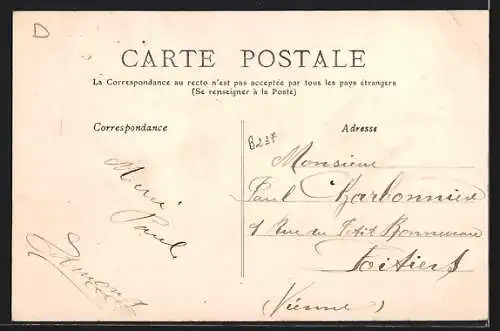 D
CARTE POSTALE
La Correspondance au recto n'est pas acceptée par tous les pays étrangers
(Se renseigner à la Poste)
Correspondance
Adresse
B237
Merci
Paul
Monsieur
Paul Charbonnier
1 Rue du Petit Bonneveau
Poitiers
(Vienne)